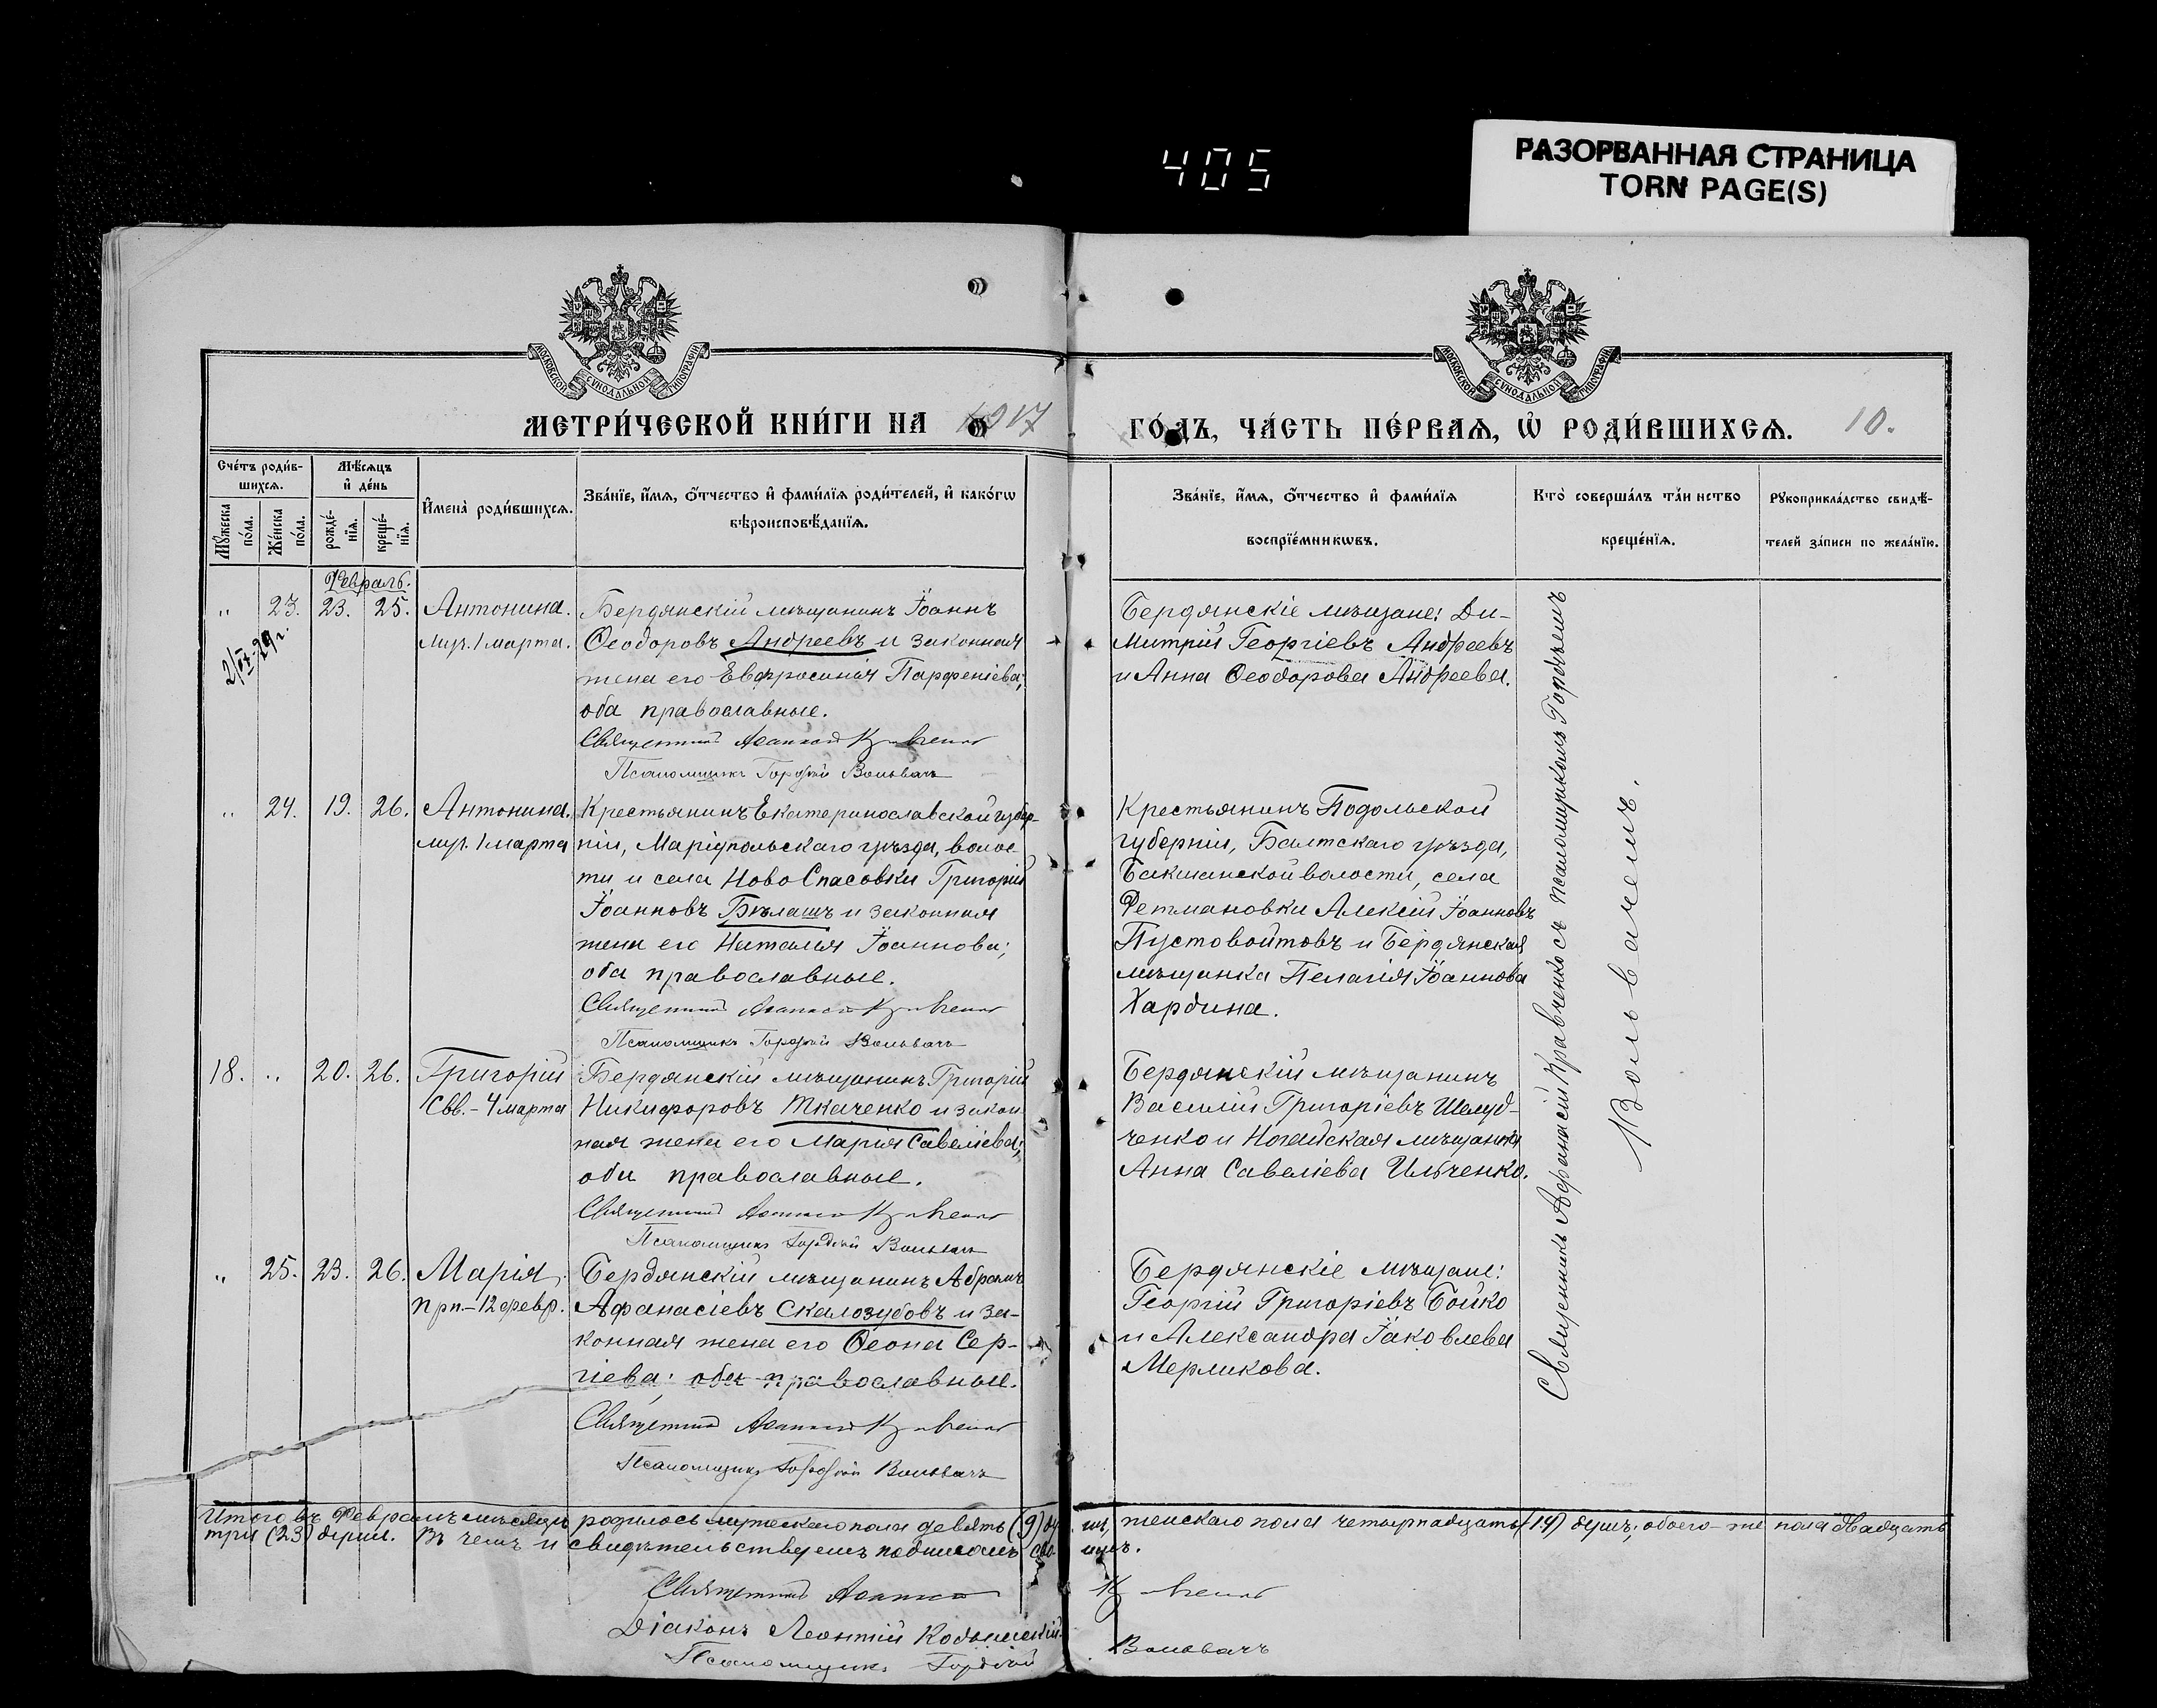 405
РАЗОРВАННАЯ СТРАНИЦА
TORN PAGE(S)
МОСКОВСКОЙ СѴНОДАЛЬНОЙ ТИПОГРАФІИ
МОСКОВСКОЙ СѴНОДАЛЬНОЙ ТИПОГРАФІИ
МЕТРИ́ЧЕСКОЙ КНИ́ГИ НА 1917
ГО́ДЪ, ЧА́СТЬ ПЕ́РВАѦ, Ѡ҆ РОДИ́ВШИХСѦ. 10.
Сче́тъ роди́в-
шихсѧ.
Мѣ́сѧцъ
и҆ де́нь
Мꙋ́жеска по́ла.
Же́нска по́ла.
рожде́-
нїѧ.
креще́-
нїѧ.
И҆мена̀ роди́вшихсѧ.
Зва́нїе, и҆́мѧ, ѻ҆́тчество и҆ фами́лїѧ роди́телей, и҆ како́гѡ
вѣроисповѣ́данїѧ.
Зва́нїе, и҆́мѧ, ѻ҆́тчество и҆ фами́лїѧ
воспрїе́мникѡвъ.
Кто̀ соверша́лъ та́инство
креще́нїѧ.
Рꙋкоприкла́дство свидѣ́-
телей за́писи по жела́нїю.
Февраль.
" 23. 23. 25. Антонина.
муч. 1 марта.
Бердянскій мѣщанинъ Іоаннъ
Ѳеодоровъ Андреевъ и законная
жена его Евфросинія Парфеніева;
оба православные.
Священникъ Афанасій Кравченко
Псаломщикъ Гордій Вольвачъ
Бердянскіе мѣщане: Ди-
митрій Георгіевъ Андреевъ
и Анна Ѳеодорова Андреева.
" 24. 19. 26. Антонина.
муч. 1 марта
Крестьянинъ Екатеринославской губер-
ніи, Маріупольскаго уѣзда, волос-
ти и села Ново Спасовки Григорій
Іоанновъ Бѣлашъ и законная
жена его Наталья Іоаннова;
оба православные.
Священникъ Афанасій Кравченко
Псаломщикъ Гордій Вольвачъ
Крестьянинъ Подольской
губерніи, Балтскаго уѣзда,
Бакшанской волости, села
Фетмановки Алексій Іоанновъ
Пустовойтовъ и Бердянская
мѣщанка Пелагія Іоаннова
Хардина.
18. " 20. 26. Григорій
Свв. - 4 марта
Бердянскій мѣщанинъ Григорій
Никифоровъ Ткаченко и закон
ная жена его Марія Савеліева;
оба православные.
Священникъ Афанасій Кравченко
Псаломщикъ Гордій Вольвачъ
Бердянскій мѣщанинъ
Василій Григоріевъ Шелуд-
ченко и Ногайская мѣщанка
Анна Савеліева Ильченко.
" 25. 23. 26. Марія.
Прп. - 12 февр.
Бердянскій мѣщанинъ Абрамъ
Афанасіевъ Скалозубовъ и за-
конная жена его Ѳеона Сер-
гіева; оба православные.
Священникъ Афанасій Кравченко
Псаломщикъ Гордій Вольвачъ
Бердянскіе мѣщане:
Георгій Григоріевъ Бойко
и Александра Іаковлева
Мерликова.
Священникъ Афанасій Кравченко съ псаломщикомъ Гордіемъ
Вольвачемъ.
Итого въ Февралѣ мѣсяцѣ родилось мужескаго пола девять (9) ду- шъ, женскаго пола четырнадцать (14) душъ; обоего-же пола двадцать
три (23) души. Въ чемъ и свидѣтельствуемъ подписомъ сво- имъ.
Священникъ Афанасій Кравченко
Діаконъ Леонтій
Псаломщикъ Гордій Вольвачъ